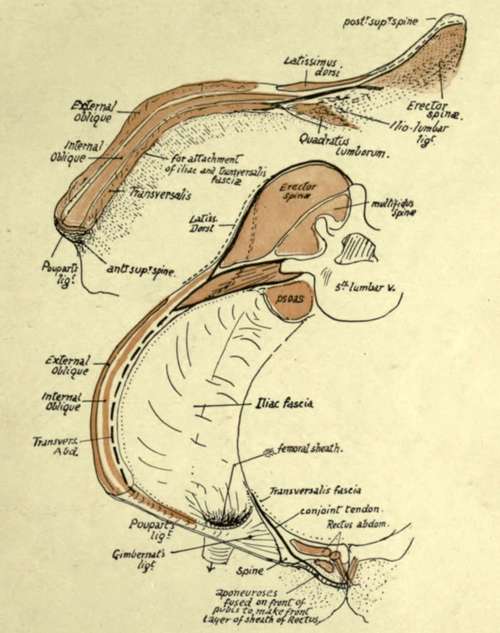 postr supr spine
Latissimus
dorsi
External
Oblique
Erector
spinæ.
Ilio-lumbar
ligt.
Quadratus
lumborum.
Internal
Oblique
for attachment
of iliac and transversalis
fasciæ
Transversalis
Erector
spinæ
multifidus
spinæ
Latiss.
Dorsi
Poupart's
ligt.
antr supr spine.
psoas
5th lumbar v.
External
Oblique
Internal
Oblique
Iliac fascia
Transvers.
Abd.
femoral sheath.
Transversalis fascia
conjoint tendon.
Rectus abdom.
Poupart's
ligt.
Gimbernat's
ligt.
Spine
aponeuroses
fused on front of
pubis to make front
layer of sheath of Rectus